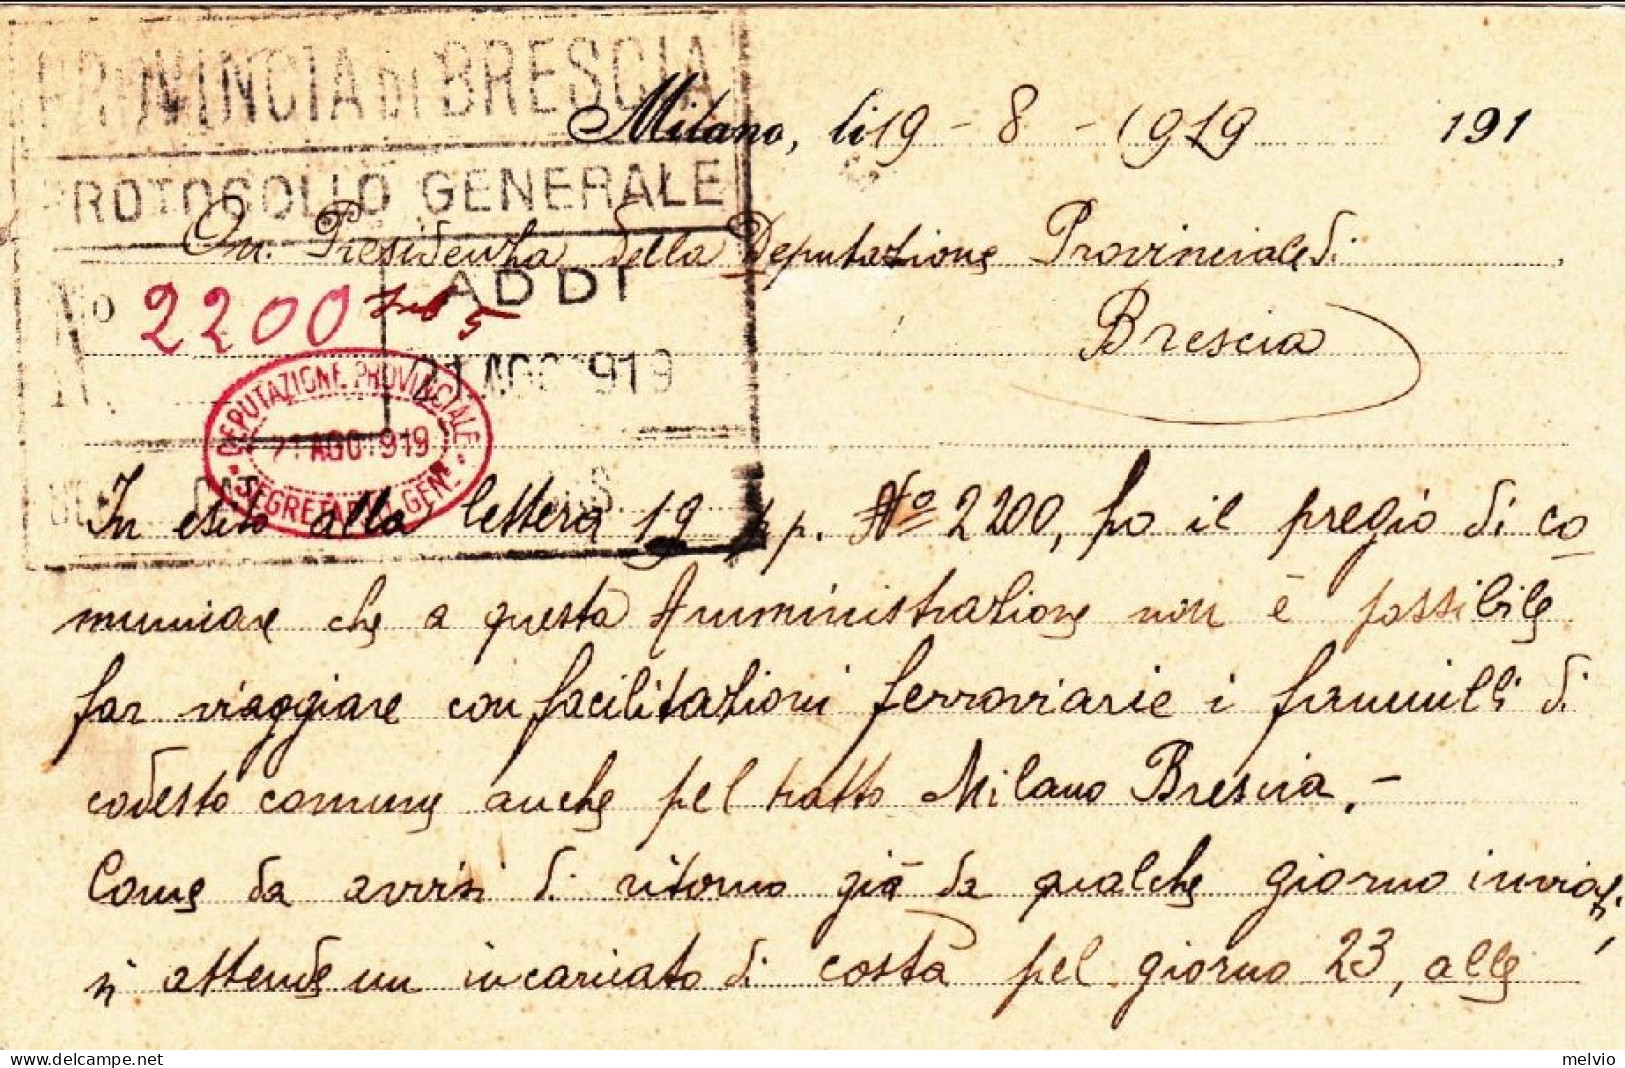 PROVINCIA DI BRESCIA
Milano, li 19 - 8 - 1919 191
PROTOCOLLO GENERALE
On. Presidenza della Deputazione Provinciale di
N° 2200 sub 5 ADDI
Brescia
21 AGO 1919
DEPUTAZIONE PROVINCIALE
21 AGO 1919
SEGRETERIA GEN.
In esito alla lettera 19 pp. N° 2200, ho il pregio di co
municare che a questa Amministrazione non è possibile
far viaggiare con facilitazioni ferroviarie i fanciulli di
codesto comune anche pel tratto Milano Brescia. -
Come da avvisi di ritorno già da qualche giorno inviati,
si attende un incaricato di costà pel giorno 23, alle
melvio